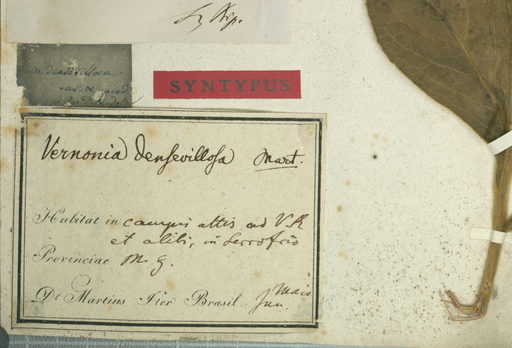 SYNTYPUS
Vernonia densevillosa Mart.
Habitat in campis altis ad V. R
et alibi, in Serro frio
Provinciae M. G.
Maio
Dr Martius Iter Brasil Jun.